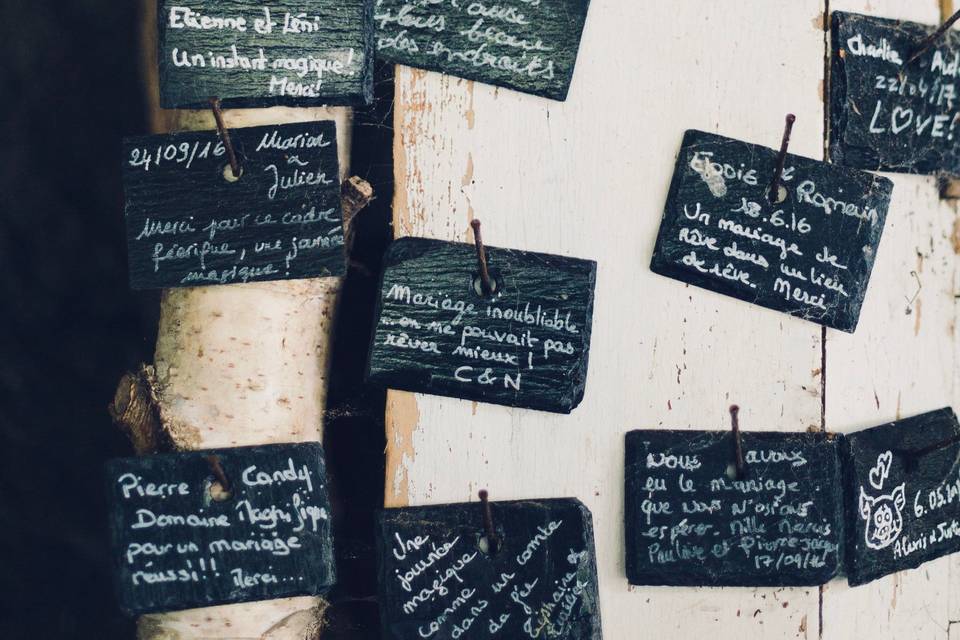 Etienne et Léni
Un instant magique!
Merci!
plus beau
des endroits
Charlie
22/04/17
LOVE!
24/09/16 Marion
&
Julien
Merci pour ce cadre
féerique, une journée
magique!
Eloïse & Romain
18.6.16
Un mariage de
Rêve dans un lieu
de rêve. Merci
Mariage inoubliable
on ne pouvait pas
rêver mieux!
C & N
Pierre Candy
Domaine Magnifique
pour un mariage
réussi!! Merci...
Une
journée
magique
comme
dans un conte
de fée
Nous avons
eu le mariage
que nous n'osions
espérer. Mille Mercis
Pauline et
17/09/16
6.05
Alexis &